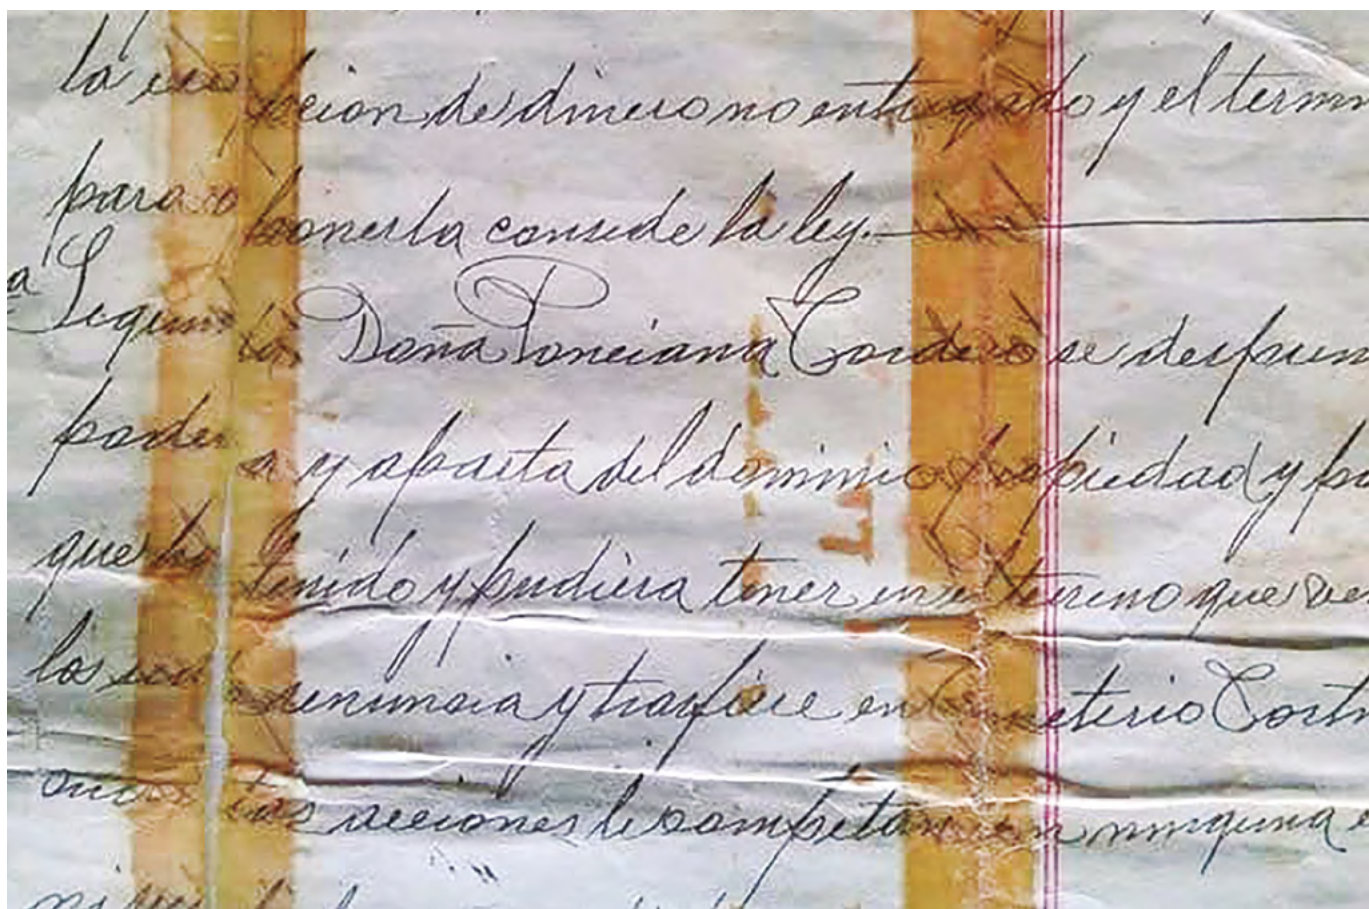 la excepcion de dinero no entregado y el termin
para oponerla consede la ley.
a Segun Doña Ponciana Cordero se despren
podera y aparta del dominio propiedad y po
que ha tenido y pudiera tener en el terreno que ve
los renuncia y trasfiere en Emeterio Cort
cuantas acciones le competan sin ninguna